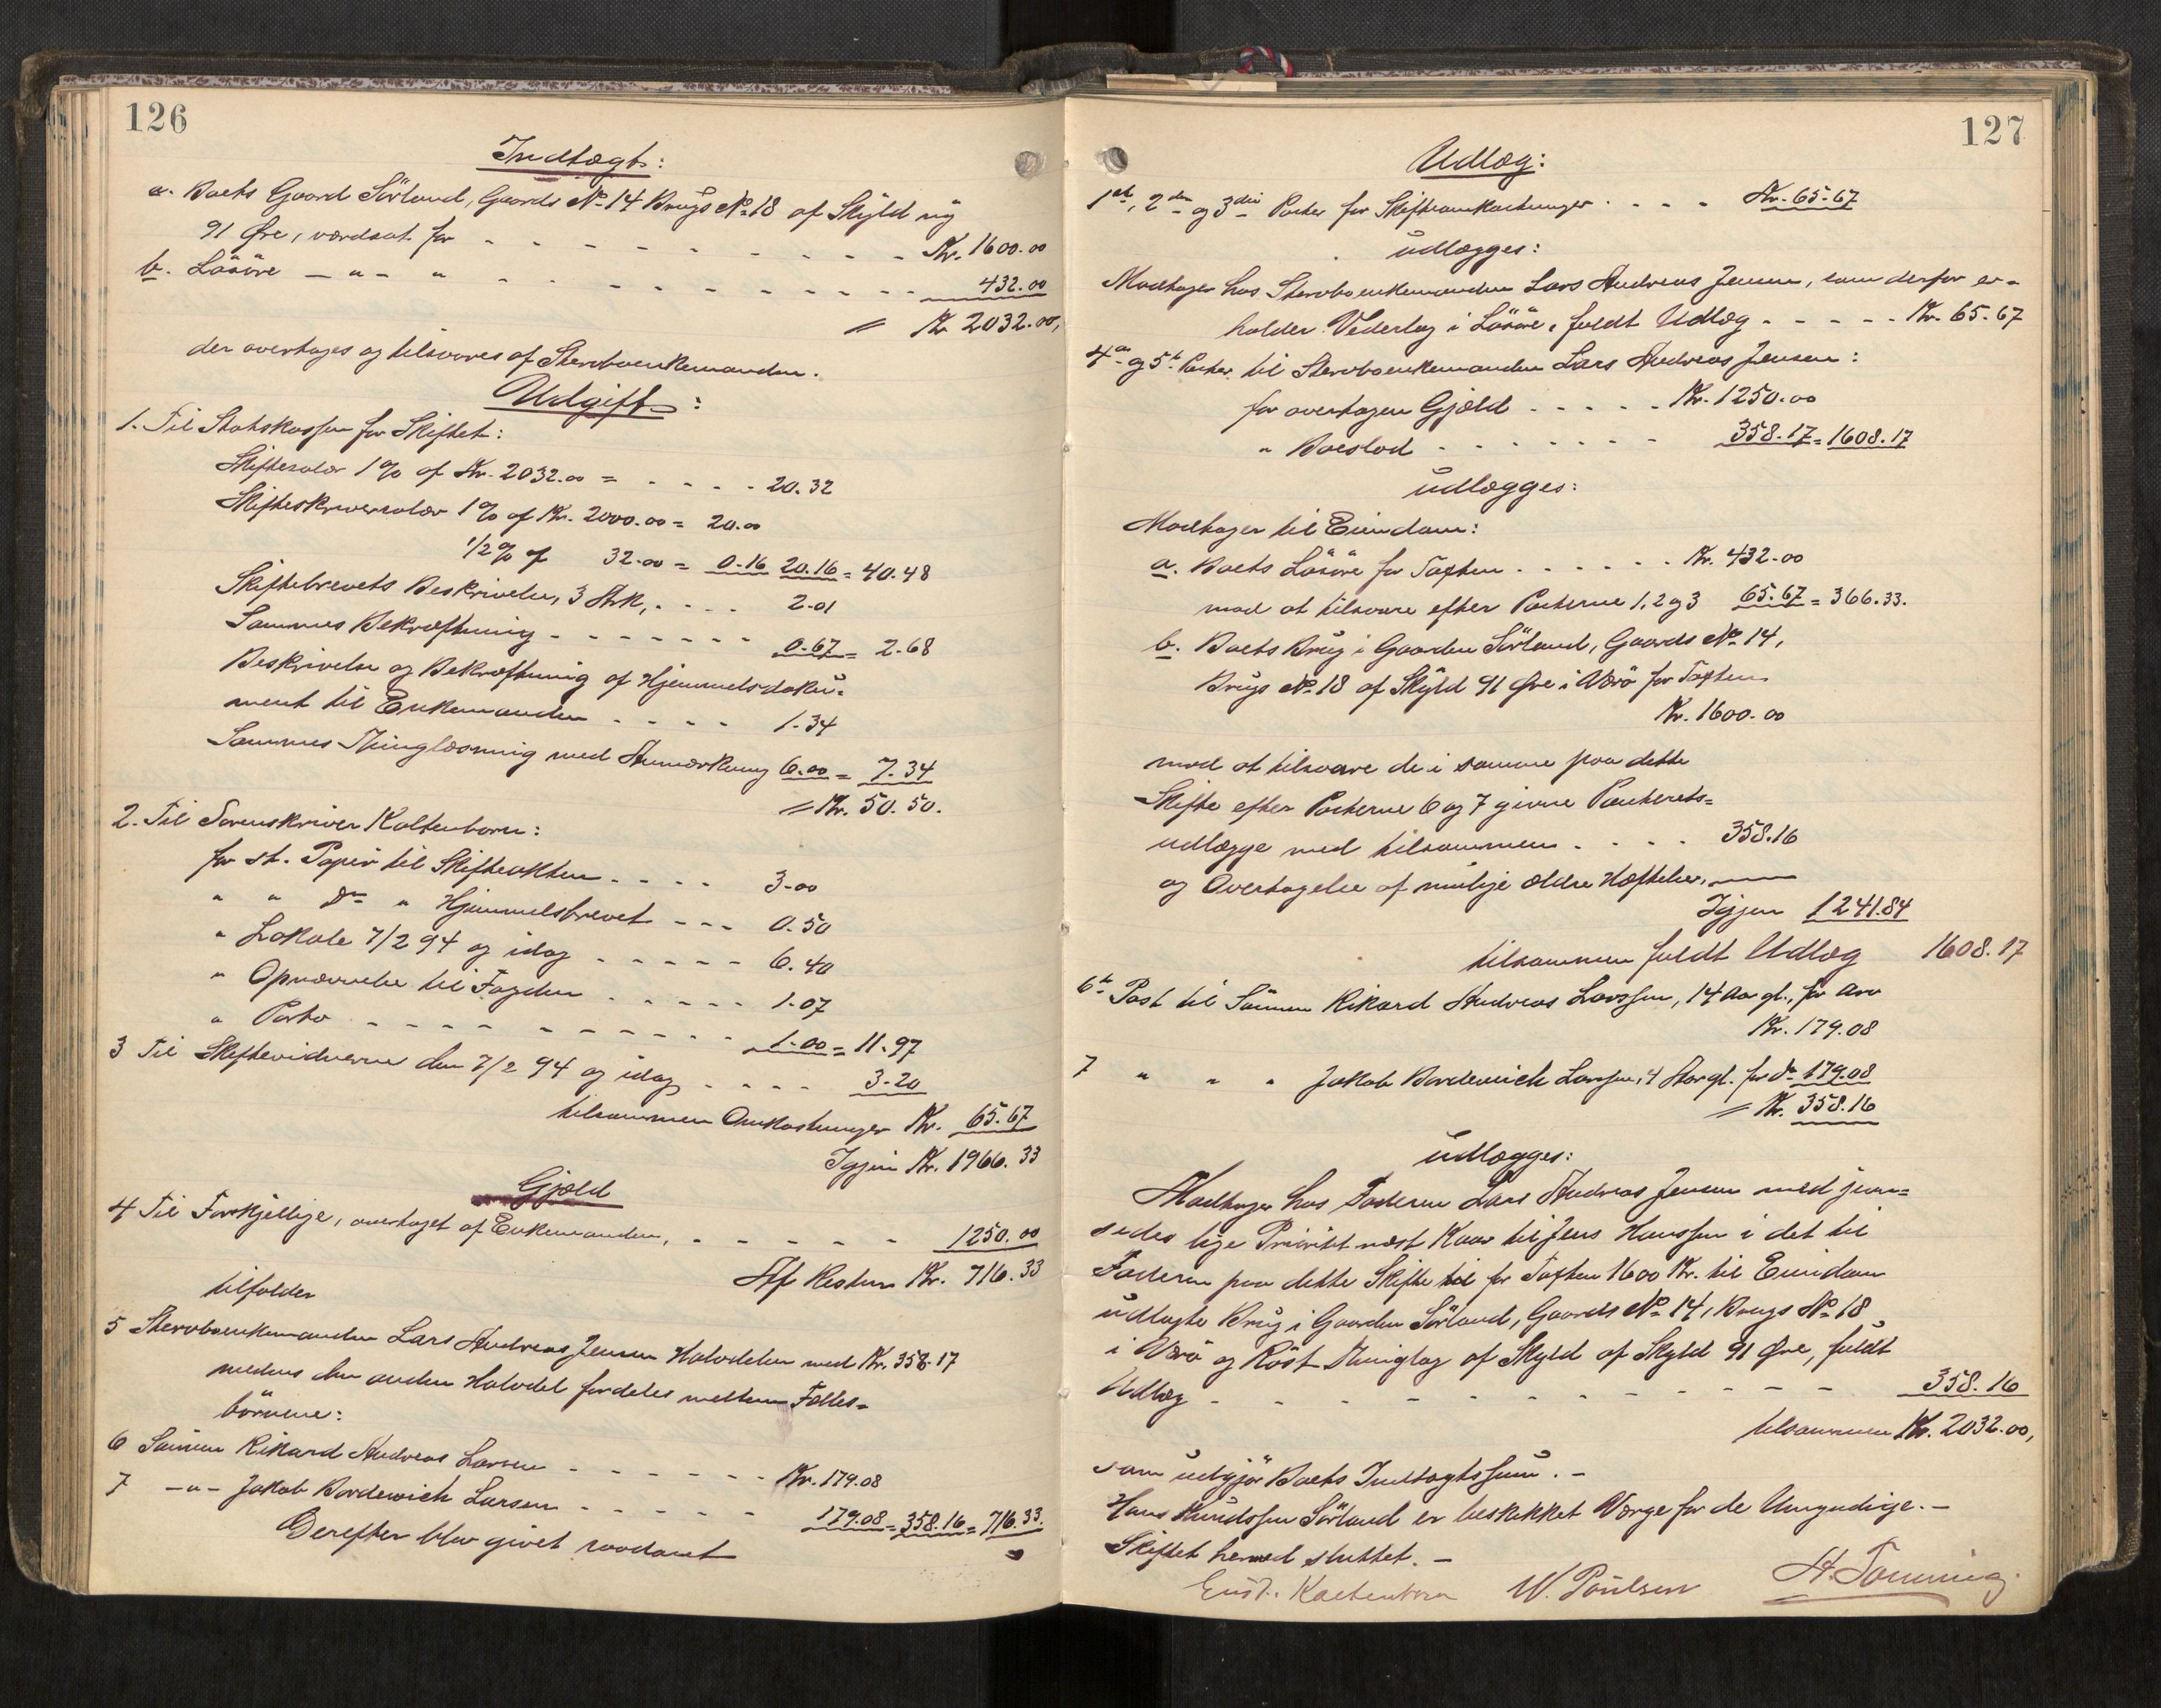 126
Indtægt:
a. Boets Gaard Sörland, Gaards No 14 Brugs No 18 af Skyld ny
91 Øre, værdsat for - - - - - - - - Kr. 1600.00
b. Lösöre - " - " - - - - - - - - - 432.00
= Kr 2032.00,
der overtages og tilsvares af Stervboenkemanden.
Udgift:
1. Til Statskassen for Skiftet:
Skiftesalær 1 % af Kr. 2032.00 = - - - - 20.32
Skifteskriversalær 1 % af Kr. 2000.00 = 20.00
1/2 % af 32.00 = 0.16 20.16 = 40.48
Skiftebrevets Beskrivelse, 3 Ark, - - - - 2.01
Sammes Bekræftning - - - - - - - 0.67 = 2.68
Beskrivelse og Bekræftning af Hjemmelsdoku=
ment til Enkemanden - - - - 1.34
Sammes Thinglæsning med Anmærkning 6.00 = 7.34
= Kr. 50.50.
2. Til Sorenskriver Koltenborn:
for st. Papir til Skifteakten - - - - 3.00
" " do " Hjemmelsbrevet - - - 0.50
" Lokale 7/2 94 og idag - - - - - 6.40
" Opnævnelse til Fogden - - - - - 1.07
" Porto - - - - - - - - - - 1.00 = 11.97
3 Til Skiftevidnerne den 7/2 94 og idag - - - - 3.20
tilsammen Omkostninger Kr. 65.67
Igjen Kr. 1966.33
Gjæld
4 Til Forskjellige, overtaget af Enkemanden, - - - - - 1250.00
Af Resten Kr. 716.33
tilfalder
5 Stervboenkemanden Lars Andreas Jensen Halvdelen med Kr. 358.17
medens den anden Halvdel fordeles mellem Fælles=
börnene:
6 Sönnen Rikard Andreas Larsen - - - - - - Kr. 179.08
7 - " - Jakob Bordewich Larsen - - - - - 179.08 = 358.16 = 716.33.
Derefter blev givet saadant
127
Udlæg:
1ste, 2den og 3die Poster for Skifteomkostninger - - - - Kr. 65.67
udlægges:
Modtager hos Stervboenkemanden Lars Andreas Jensen, som derfor er=
holder Vederlag i Lösöre, fuldt Udlæg - - - - - Kr. 65.67
4de og 5te Poster til Stervboenkemanden Lars Andreas Jensen:
for overtagen Gjæld - - - - - Kr. 1250.00
" Boeslod - - - - - - - 358.17 = 1608.17
udlægges:
Modtager til Eiendom:
a. Boets Lösöre for Taxten - - - - - - Kr. 432.00
mod at tilsvare efter Posterne 1, 2 og 3 65.67 = 366.33.
b. Boets Brug i Gaarden Sörland, Gaards No 14,
Brugs No 18 af Skyld 91 Øre i Værö for Taxten
Kr. 1600.00
mod at tilsvare de i samme paa dette
Skifte efter Posterne 6 og 7 givne Panterets=
udlægge med tilsammen - - - - 358.16
og Overtagelse af mulige ældre Hæftelser,
Igjen 1241.84
tilsammen fuldt Udlæg 1608.17
6te Post til Sönnen Rikard Andreas Larssen, 14 Aar gl., for Arv
Kr. 179.08
7 " " " Jakob Bordewich Larssen, 4 Aar gl. for do 179.08
= Kr. 358.16
udlægges:
Modtager hos Faderen Lars Andreas Jensen med jevn=
sides lige Prioritet næst Kaar til Jens Hanssen i det til
Faderen paa dette Skifte til for Taxten 1600 Kr. til Eiendom
udlagte Brug i Gaarden Sörland, Gaards No 14, Brugs No 18
i Værö og Röst Thinglag af Skyld af Skyld 91 Øre, fuldt
Udlæg - - - - - - - - - - 358.16
tilsammen Kr. 2032.00,
som udgjör Boets Indtægtssum. -
Hans Knudssen Sörland er beskikket Værge for de Umyndige. -
Skiftet hermed sluttet. -
Koltenborn W. Poulsen